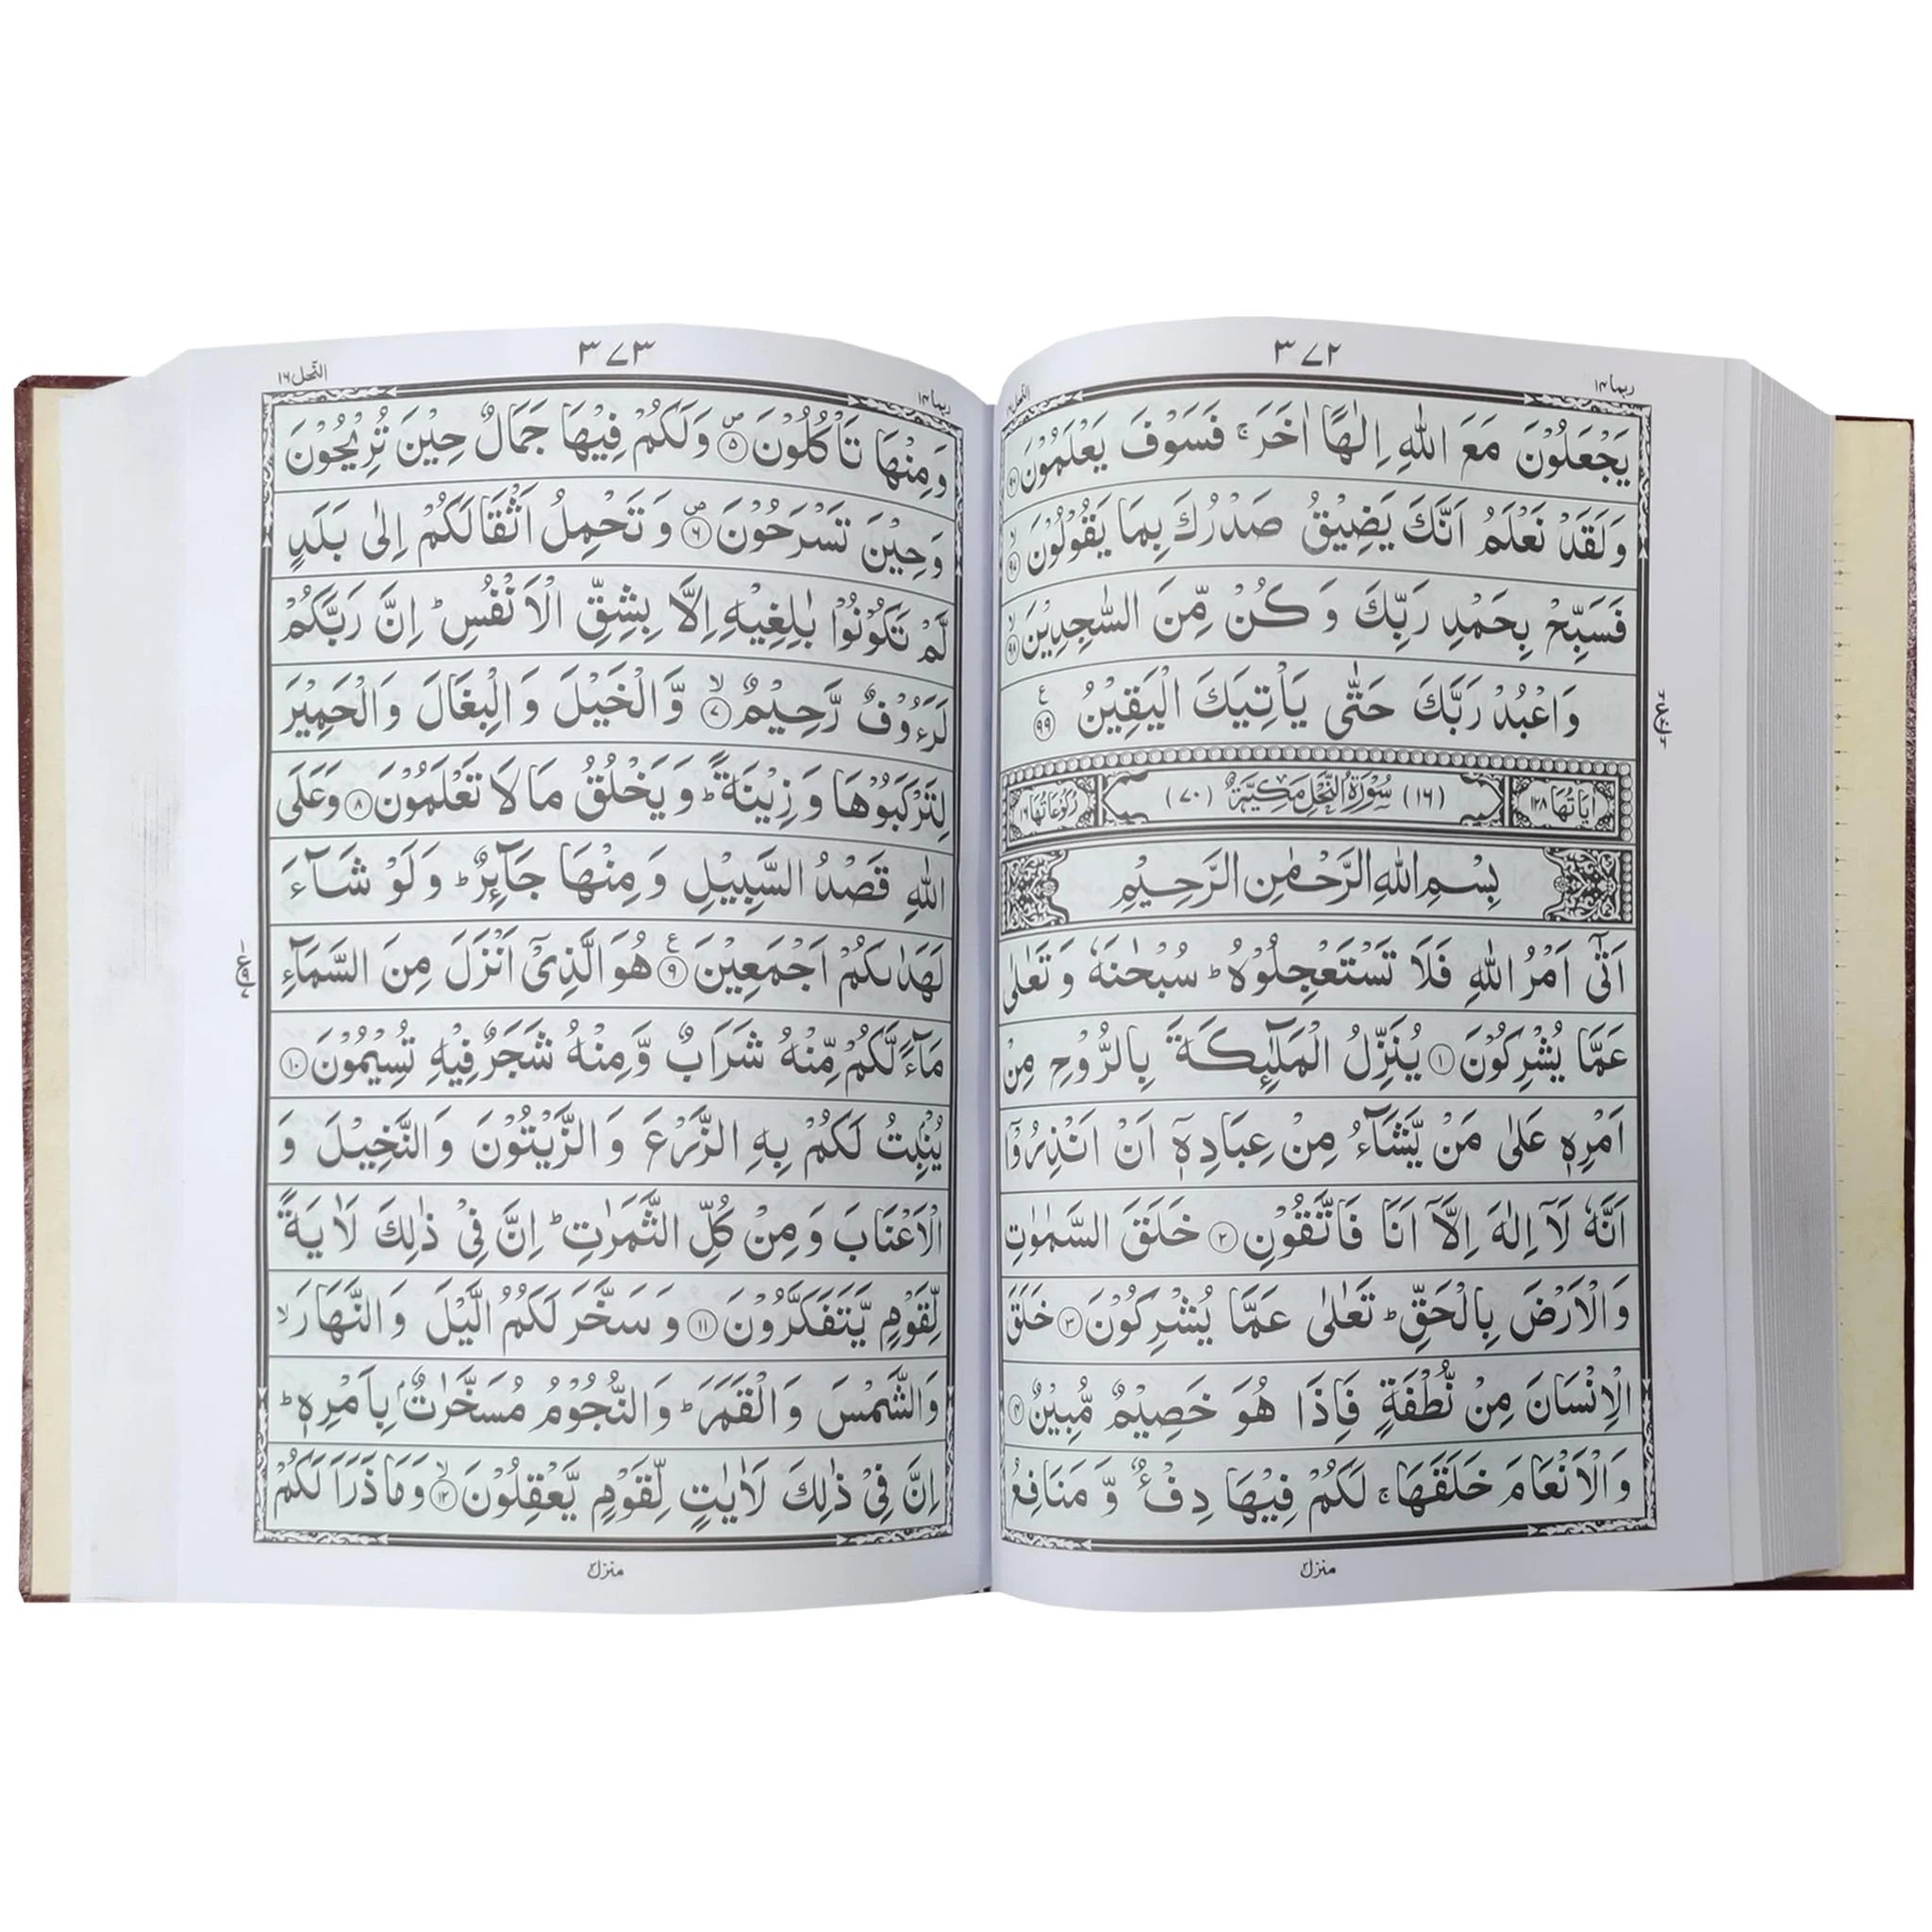 ٣٧٢
ربما ١٤
النحل ١٦
يَجْعَلُوْنَ مَعَ اللّٰهِ اِلٰهًا اٰخَرَ ۚ فَسَوْفَ يَعْلَمُوْنَ ﴿۹۶﴾
وَلَقَدْ نَعْلَمُ اَنَّكَ يَضِيْقُ صَدْرُكَ بِمَا يَقُوْلُوْنَ ۙ ﴿۹۷﴾
فَسَبِّحْ بِحَمْدِ رَبِّكَ وَكُنْ مِّنَ السّٰجِدِيْنَ ۙ ﴿۹۸﴾
وَاعْبُدْ رَبَّكَ حَتّٰى يَاْتِيَكَ الْيَقِيْنُ ﴿۹۹﴾ ع
اٰيَاتُهَا ١٢٨ (١٦) سُوْرَةُ النَّحْلِ مَكِّيَّةٌ (٧٠) رُكُوْعَاتُهَا ١٦
بِسْمِ اللّٰهِ الرَّحْمٰنِ الرَّحِيْمِ
اَتٰٓى اَمْرُ اللّٰهِ فَلَا تَسْتَعْجِلُوْهُ ؕ سُبْحٰنَهٗ وَتَعٰلٰى
عَمَّا يُشْرِكُوْنَ ﴿۱﴾ يُنَزِّلُ الْمَلٰٓئِكَةَ بِالرُّوْحِ مِنْ
اَمْرِهٖ عَلٰى مَنْ يَّشَآءُ مِنْ عِبَادِهٖۤ اَنْ اَنْذِرُوْۤا
اَنَّهٗ لَاۤ اِلٰهَ اِلَّاۤ اَنَا فَاتَّقُوْنِ ﴿۲﴾ خَلَقَ السَّمٰوٰتِ
وَالْاَرْضَ بِالْحَقِّ ؕ تَعٰلٰى عَمَّا يُشْرِكُوْنَ ﴿۳﴾ خَلَقَ
الْاِنْسَانَ مِنْ نُّطْفَةٍ فَاِذَا هُوَ خَصِيْمٌ مُّبِيْنٌ ﴿۴﴾
وَالْاَنْعَامَ خَلَقَهَا ۚ لَكُمْ فِيْهَا دِفْءٌ وَّمَنَافِعُ
منزل
٣٧٣
ربما ١٤
النحل ١٦
وَمِنْهَا تَاْكُلُوْنَ ۪ ﴿۵﴾ وَلَكُمْ فِيْهَا جَمَالٌ حِيْنَ تُرِيْحُوْنَ
وَحِيْنَ تَسْرَحُوْنَ ۪ ﴿۶﴾ وَتَحْمِلُ اَثْقَالَكُمْ اِلٰى بَلَدٍ
لَّمْ تَكُوْنُوْا بٰلِغِيْهِ اِلَّا بِشِقِّ الْاَنْفُسِ ؕ اِنَّ رَبَّكُمْ
لَرَءُوْفٌ رَّحِيْمٌ ۙ ﴿۷﴾ وَّالْخَيْلَ وَالْبِغَالَ وَالْحَمِيْرَ
لِتَرْكَبُوْهَا وَزِيْنَةً ؕ وَيَخْلُقُ مَا لَا تَعْلَمُوْنَ ﴿۸﴾ وَعَلَى
اللّٰهِ قَصْدُ السَّبِيْلِ وَمِنْهَا جَآئِرٌ ؕ وَلَوْ شَآءَ
لَهَدٰىكُمْ اَجْمَعِيْنَ ﴿۹﴾ ع هُوَ الَّذِيْۤ اَنْزَلَ مِنَ السَّمَآءِ
مَآءً لَّكُمْ مِّنْهُ شَرَابٌ وَّمِنْهُ شَجَرٌ فِيْهِ تُسِيْمُوْنَ ﴿۱۰﴾
يُنْۢبِتُ لَكُمْ بِهِ الزَّرْعَ وَالزَّيْتُوْنَ وَالنَّخِيْلَ وَ
الْاَعْنَابَ وَمِنْ كُلِّ الثَّمَرٰتِ ؕ اِنَّ فِيْ ذٰلِكَ لَاٰيَةً
لِّقَوْمٍ يَّتَفَكَّرُوْنَ ﴿۱۱﴾ وَسَخَّرَ لَكُمُ الَّيْلَ وَالنَّهَارَ ۙ
وَالشَّمْسَ وَالْقَمَرَ ؕ وَالنُّجُوْمُ مُسَخَّرٰتٌۢ بِاَمْرِهٖ ؕ
اِنَّ فِيْ ذٰلِكَ لَاٰيٰتٍ لِّقَوْمٍ يَّعْقِلُوْنَ ۙ ﴿۱۲﴾ وَمَا ذَرَاَ لَكُمْ
منزل